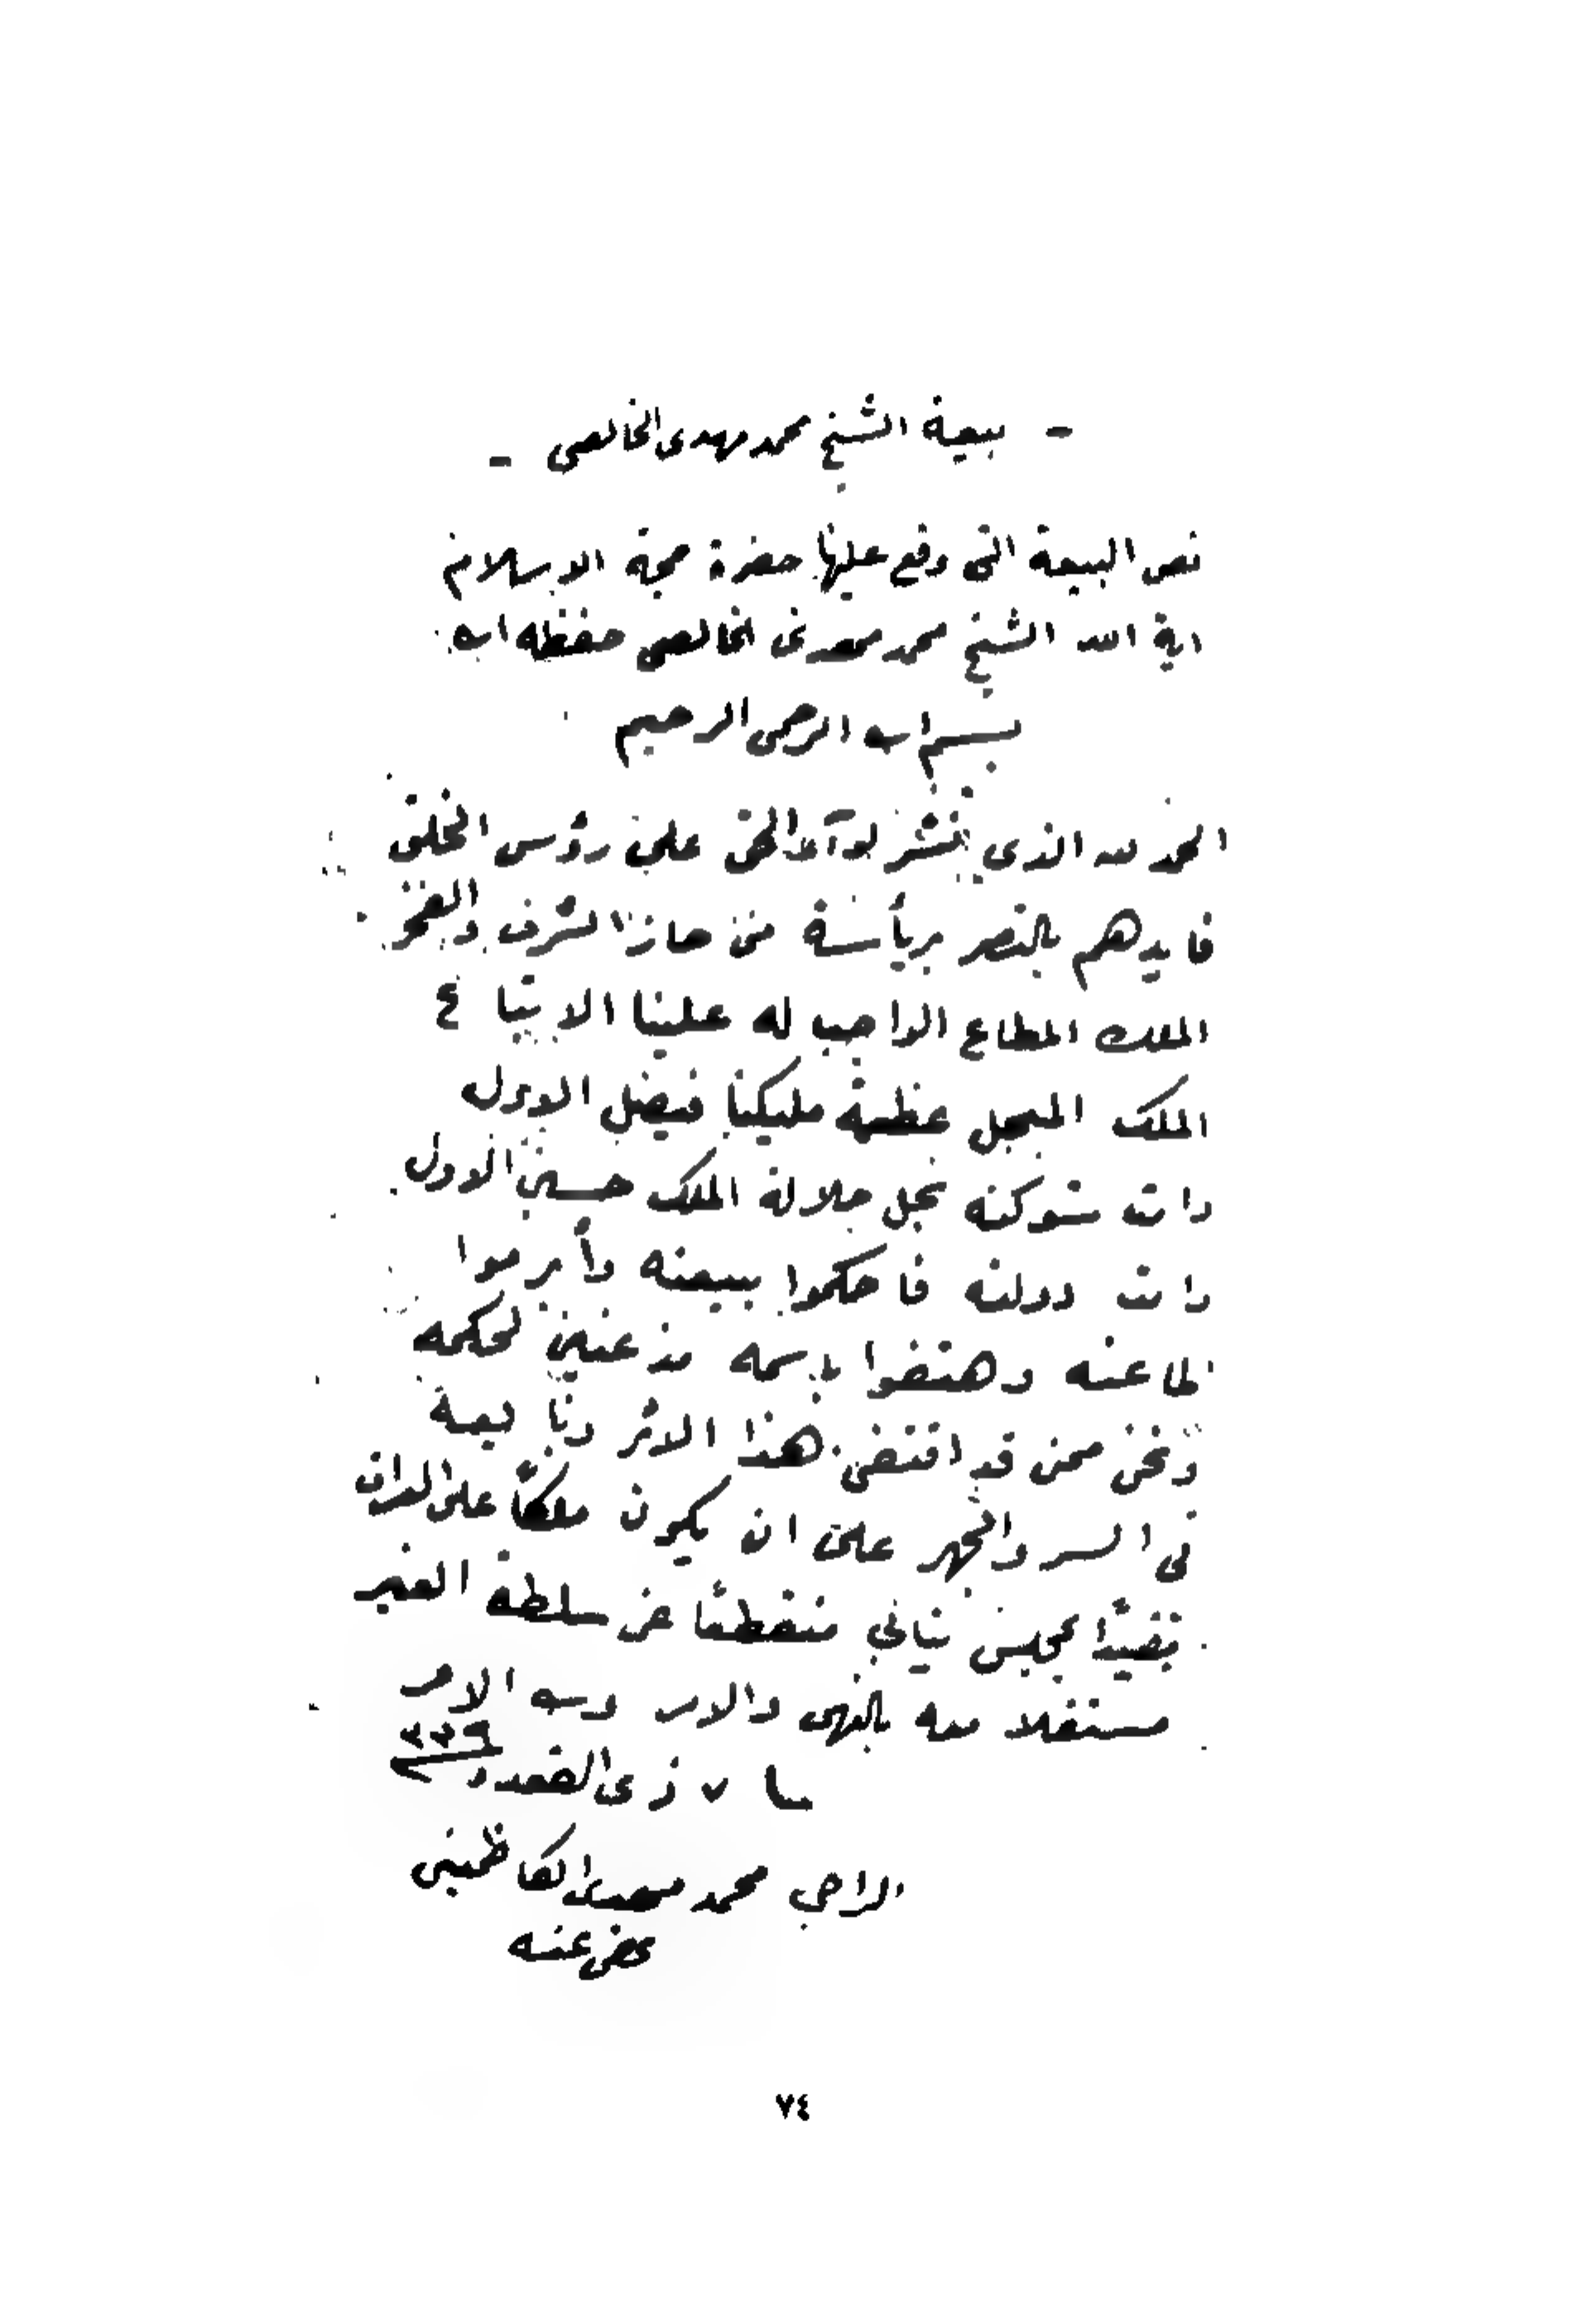 - بيعة الشيخ محمد مهدى الخالصي -
نص البيعة التى وقع عليها حضرة حجة الاسلام
اية الله الشيخ محمد مهدى الخالصي حفظه الله
بسم الله الرحمن الرحيم
الحمد لله الذى نشر لوآء الحق على رؤس الخلق
فايدهم بالنصر برئاسة من حاز الشرف والفخر
الملك المطاع الواجب له علينا الاتباع
الملك المبجل عظمة مليكنا فيصل الاول
دامت شوكته نجل جلالة الملك حسين الاول
دامت دولته فاحكموا بيعته وأبرموا
طاعته وهتفوا باسمه مذعنين لحكمه
ونحن ممن قد اقتفى هذا الاثر بيعة
في السر والجهر على ان يكون ملكاً على العراق
مقيداً بمجلس نيابي منقطعاً عن سلطة الغير
مستقلا معه بالنهى والامر ولله الامر
٧ ذى القعدة
الراجي محمد مهدى الكاظمينى
عفى عنه
٧٤